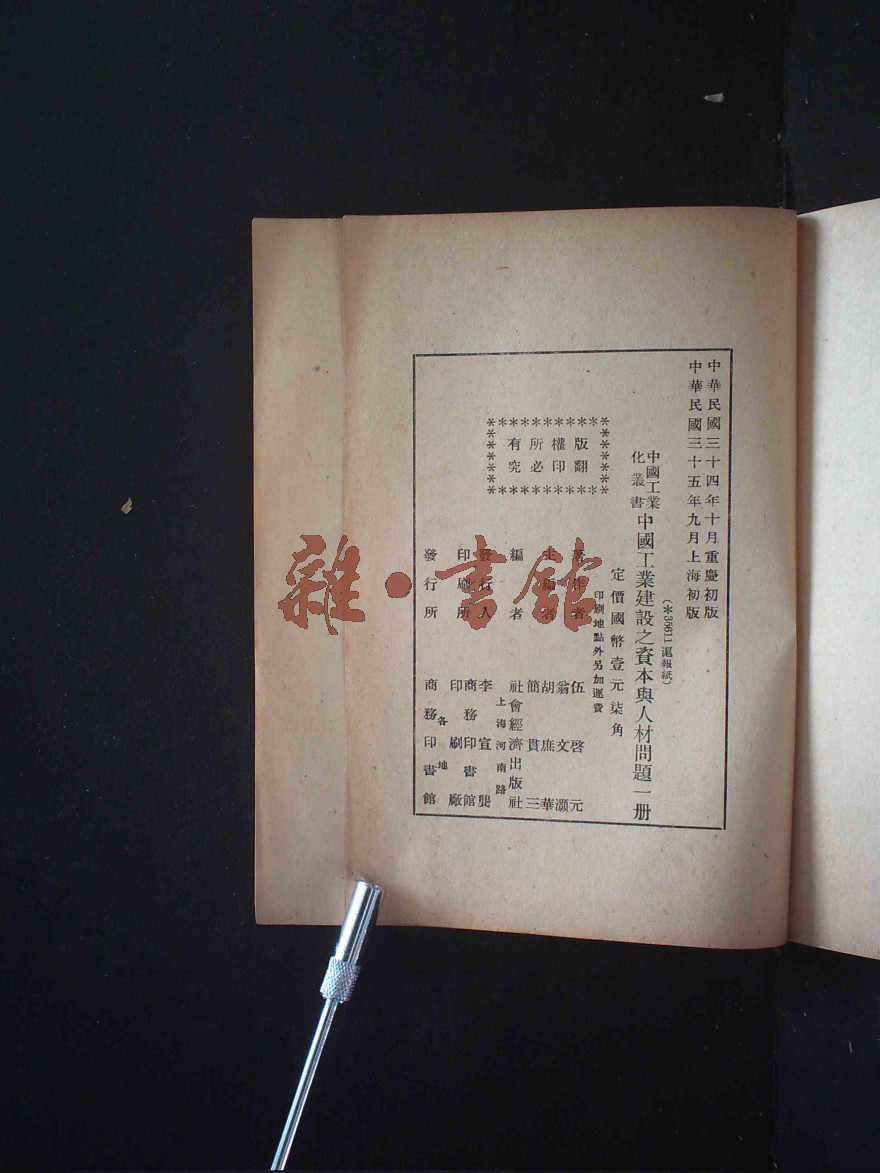 中華民國三十四年十月重慶初版
中華民國三十五年九月上海初版
(＊35611 滬報紙)
中國工業
化叢書
中國工業建設之資本與人材問題一册
定價國幣壹元柒角
印刷地點外另加運費
版權所有
翻印必究
著作者 伍啓元
主編者 翁文灝
胡庶華
簡貫三
編者 社會經濟出版社
上海河南路
發行人 李宣龔
印刷所 商務印書館
印刷廠
各地
發行所 商務印書館
雜·書館